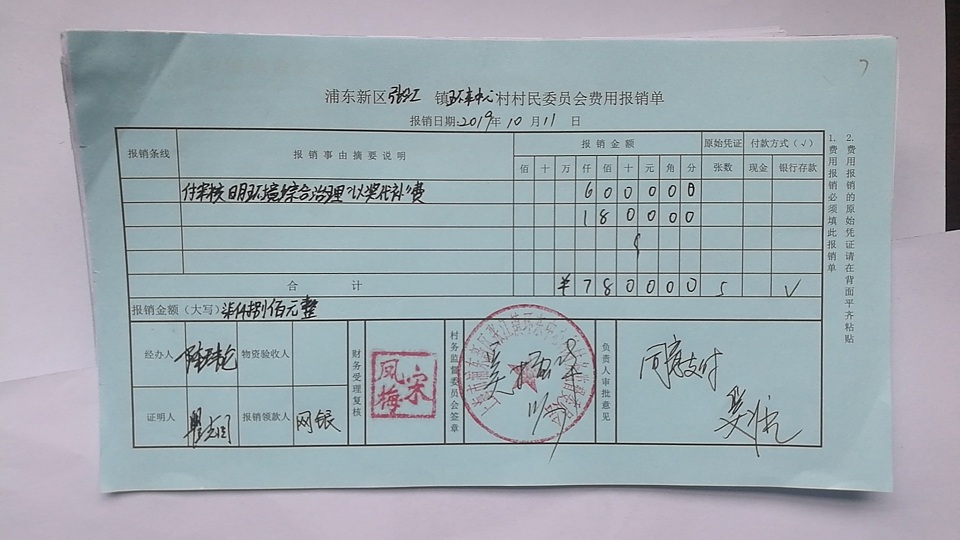 7
浦东新区张江 镇环东中心村村民委员会费用报销单
报销日期:2019年10月11日
报销条线 报销事由摘要说明 报销金额 原始凭证 付款方式(√)
佰 十 万 仟 佰 十 元 角 分 张数 现金 银行存款
环境综合治理"以奖代补"费 600000
180000
合计 ¥780000 5 √
报销金额(大写) 柒仟捌佰元整
经办人 物资验收人
证明人 报销领款人 网银
财务受理复核
凤梅 宋
村务监督委员会签章
11/10
负责人审批意见
同意支付
1.费用报销必须填此报销单
2.费用报销的原始凭证请在背面平齐粘贴